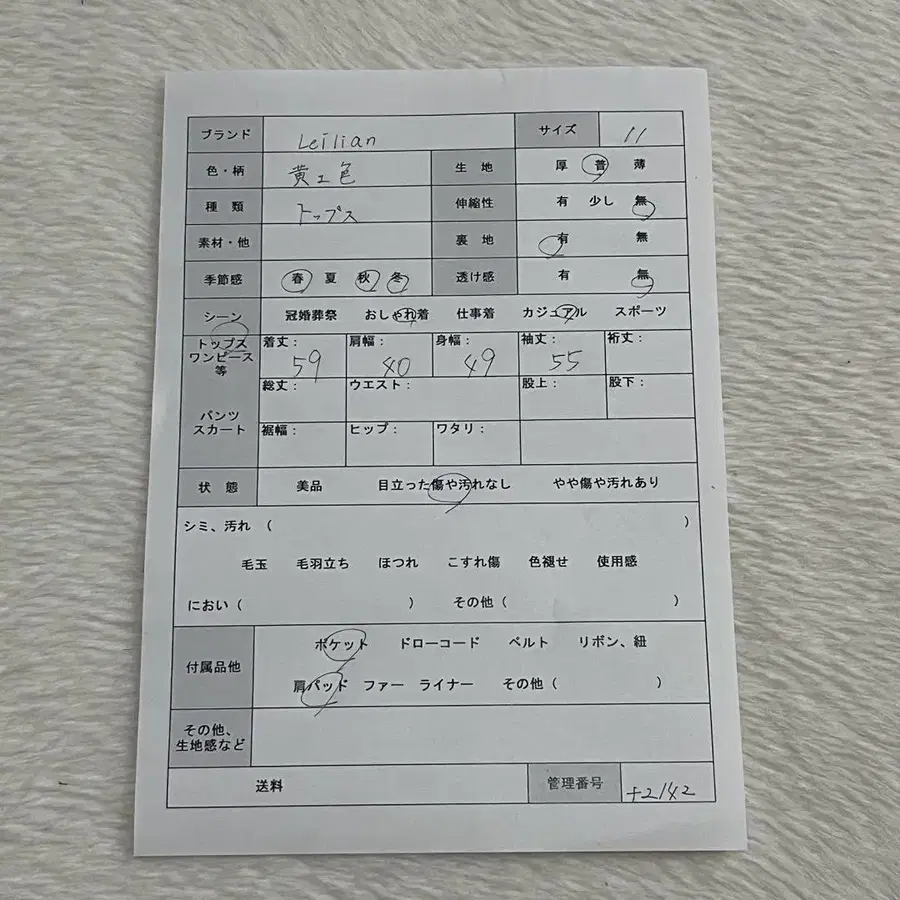 ブランド Leilian サイズ 11
色・柄 黄土色 生 地 厚 普 薄
種 類 トップス 伸縮性 有 少し 無
素材・他 裏 地 有 無
季節感 春 夏 秋 冬 透け感 有 無
シーン 冠婚葬祭 おしゃれ着 仕事着 カジュアル スポーツ
トップス ワンピース 等 着丈: 59 肩幅: 40 身幅: 49 袖丈: 55 裄丈:
パンツ スカート 総丈: ウエスト: 股上: 股下:
裾幅: ヒップ: ワタリ:
状 態 美品 目立った傷や汚れなし やや傷や汚れあり
シミ、汚れ ( )
毛玉 毛羽立ち ほつれ こすれ傷 色褪せ 使用感
におい( ) その他( )
付属品他 ポケット ドローコード ベルト リボン、紐
肩パッド ファー ライナー その他( )
その他、
生地感など
送料 管理番号 +2142